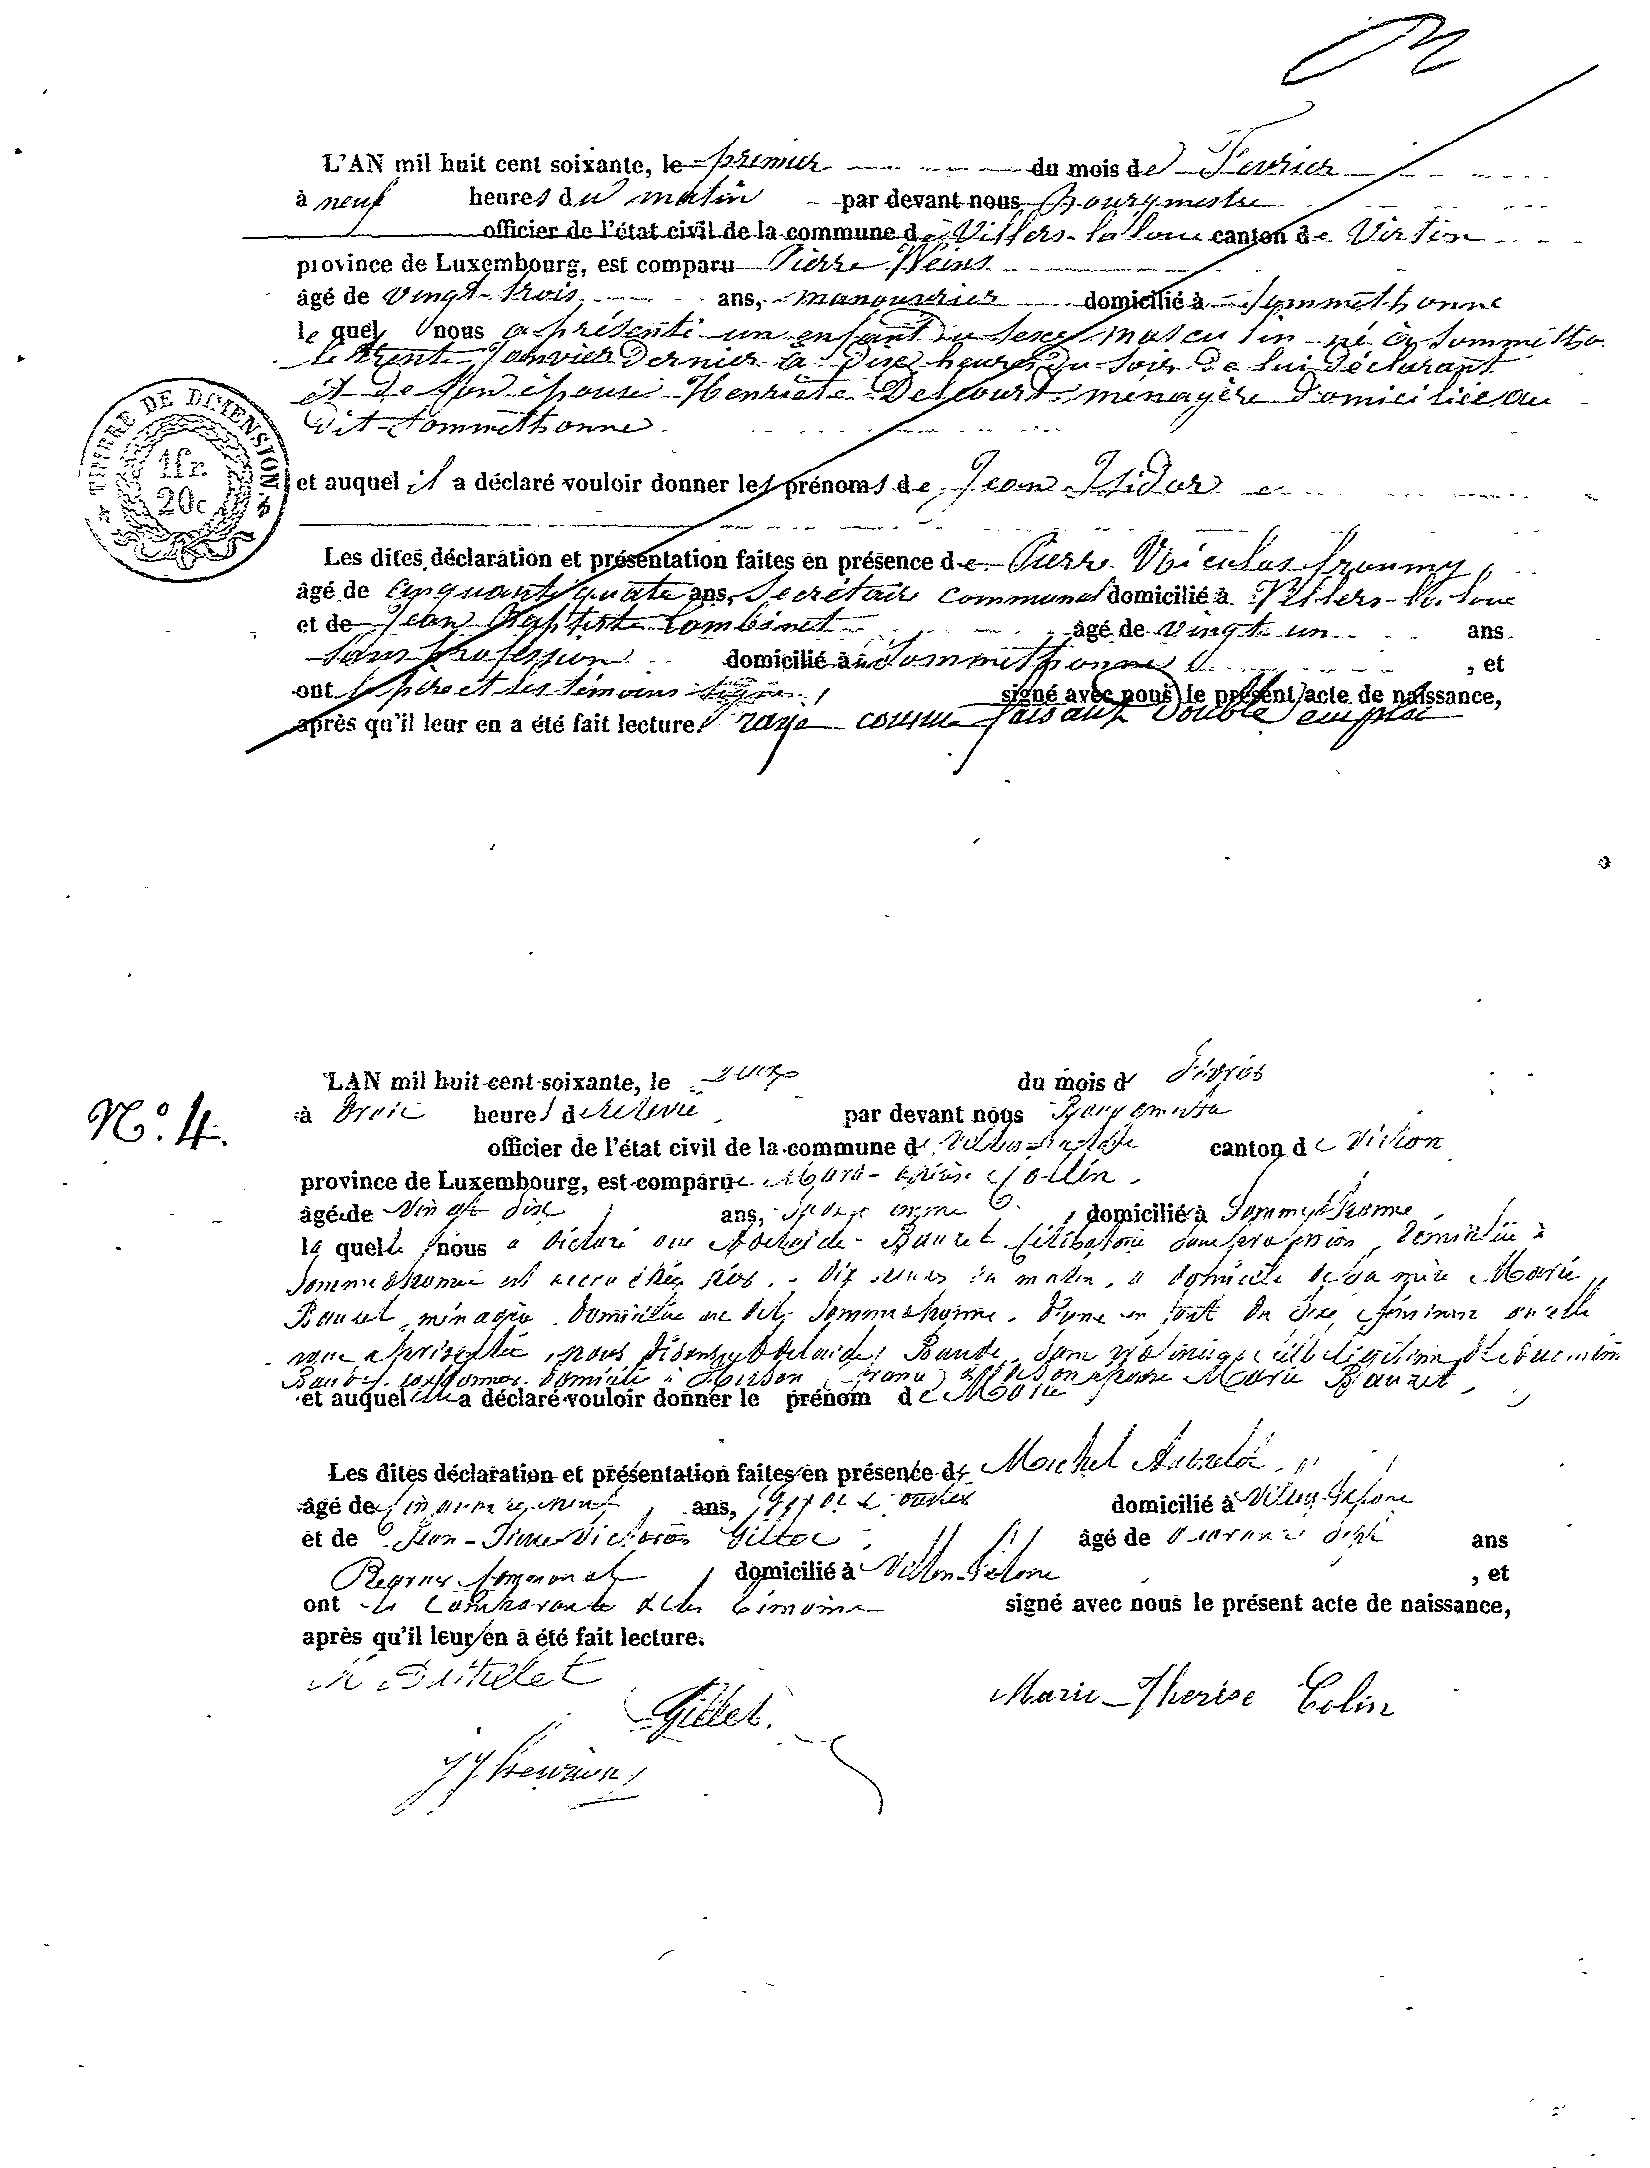 L'AN mil huit cent soixante, le premier du mois de Fevrier
à neuf heures du matin par devant nous Bourgmestre
officier de l'état civil de la commune de Villers-la-loue canton de Virton
province de Luxembourg, est comparu Pierre Weins
âgé de vingt-trois ans, manouvrier domicilié à Sommethonne
le quel nous a présenté un enfant du sexe masculin né à Sommetho.
le trente Janvier dernier à dix heures du soir de lui déclarant
et de son épouse Henriete Delcourt ménagère domiciliée au
dit Sommethonne
TIMBRE DE DIMENSION.
1fr.
20c
et auquel il a déclaré vouloir donner les prénoms de Jean Isidor
Les dites déclaration et présentation faites en présence de Pierre Nicolas
âgé de cinquante quatre ans, Secrétaire communal domicilié à Villers-la-loue
et de Jean Baptiste Lambinet âgé de vingt un ans
Sans profession domicilié à Sommethonne , et
ont le père et les témoins signé signé avec nous le présent acte de naissance,
après qu'il leur en a été fait lecture. rayé comme faisant double emploi
N.° 4.
L'AN mil huit cent soixante, le du mois de Février
à trois heures de relevée par devant nous Bourgmestre
officier de l'état civil de la commune de Villers-la-loue canton de Virton
province de Luxembourg, est comparue Marie-thérèse Collin
âgée de Vingt dix ans, Sage femme domicilié à Sommethonne
la quelle nous a déclaré que Adelaide Bauret Célibataire sans profession, domiciliée à
Sommethonne est accouchée dix heures du matin, a domicile de sa mère Marie
Bauret, ménagère domiciliée au dit Sommethonne, d'une enfant du sexe féminin qu'elle
nous a présentée, nous disons Adelaide
domicilié à Hirson (france) et de son épouse Marie Bauret
et auquel elle a déclaré vouloir donner le prénom de Marie
Les dites déclaration et présentation faites en présence de Michel
âgé de cinquante neuf ans, domicilié à Villers-la-loue
et de Jean- Gillet âgé de quarante sept ans
domicilié à Villers-la-loue , et
ont la Comparante et les témoins signé avec nous le présent acte de naissance,
après qu'il leur en a été fait lecture.
Marie-Thérèse Colin
Gillet.